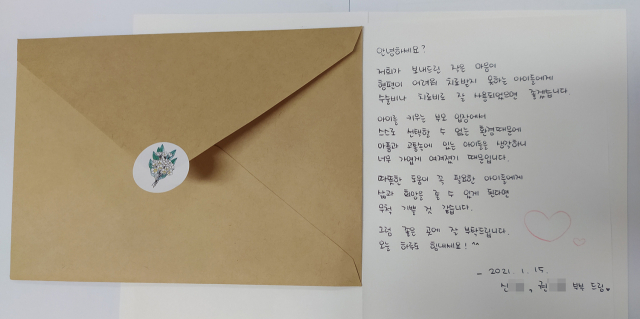 안녕하세요?
저희가 보내드린 작은 마음이
형편이 어려워 치료받지 못하는 아이들에게
수술비나 치료비로 잘 사용되었으면 좋겠습니다.
아이를 키우는 부모 입장에서
스스로 선택할 수 없는 환경때문에
아픔과 고통속에 있는 아이들을 생각하니
너무 가엽게 여겨졌기 때문입니다.
따뜻한 도움이 꼭 필요한 아이들에게
삶과 희망을 줄 수 있게 된다면
무척 기쁠 것 같습니다.
그럼 좋은 곳에 잘 부탁드립니다.
오늘 하루도 힘내세요! ^^
- 2021. 1. 15.
신 , 권 부부 드림.